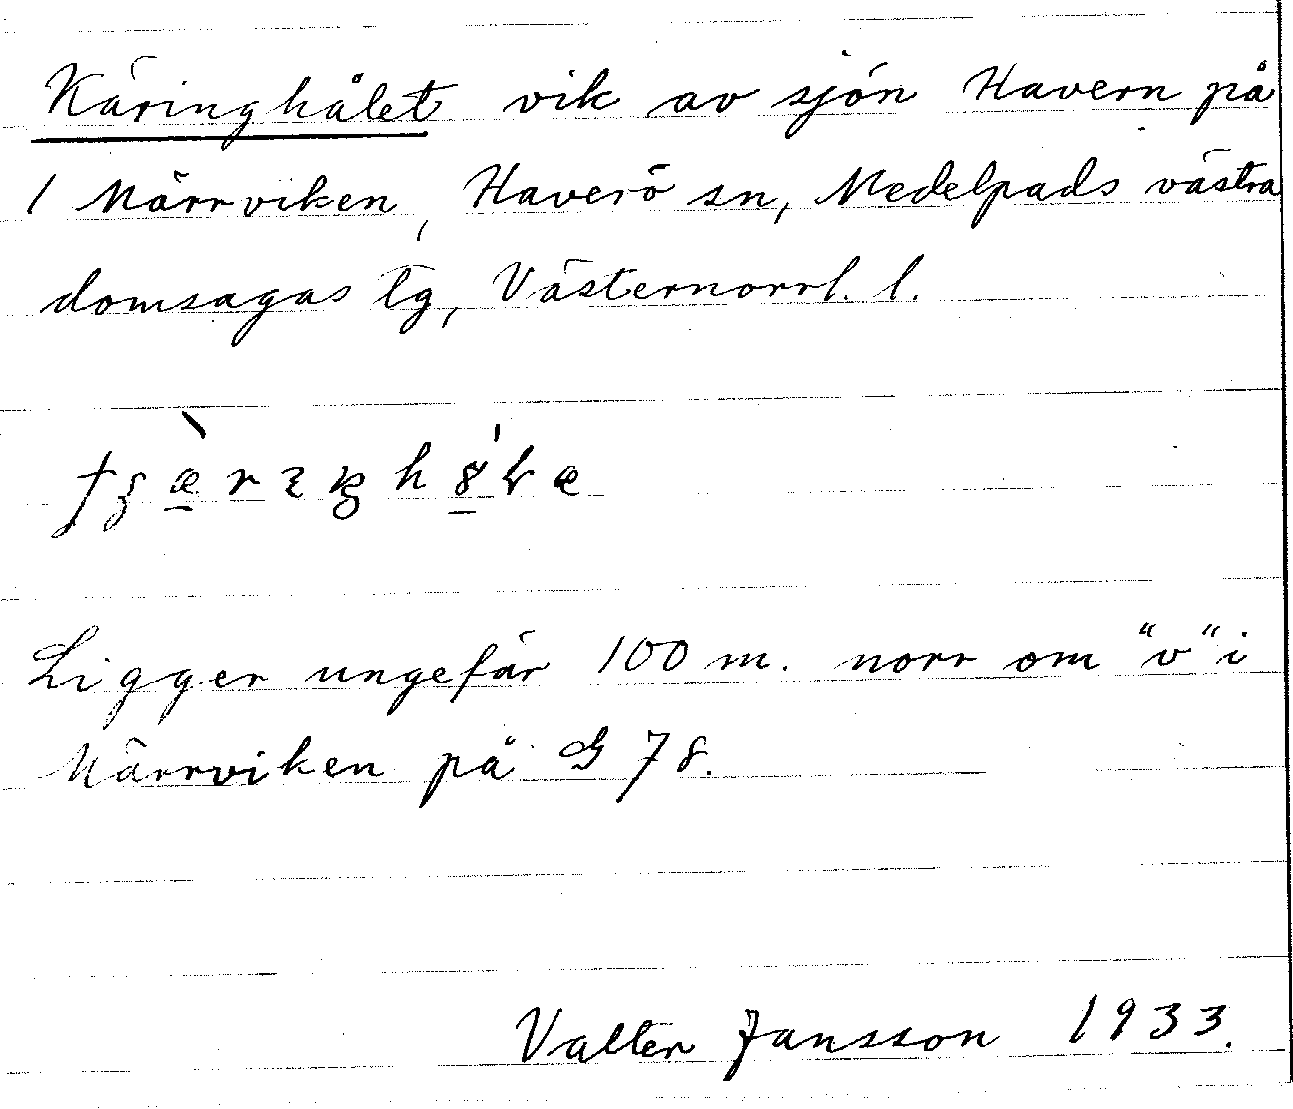 Käringhålet vik av sjön Havern på
1 Märrviken, Haverö sn, Medelpads västra
domsagas tg, Västernorrl. l.
Ligger ungefär 100 m. norr om "v" i
Märrviken på G 78.
Valter Jansson 1933.